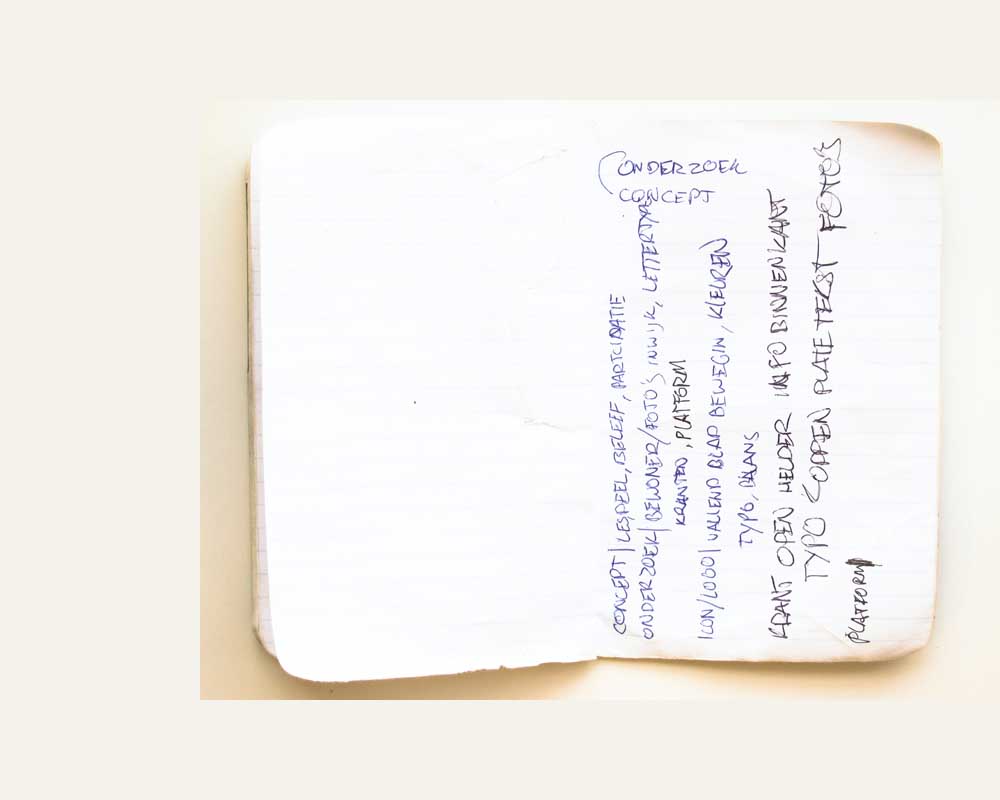 ONDERZOEK
CONCEPT
CONCEPT | LESPEEL, BELEEF, PARTICIPATIE
ONDERZOEK | BEWONER/FOTO'S INWIJK, LETTERTYPE
KRANTEN, PLATFORM
ICON/LOGO | VALLEND BLAD BEWEGIN, KLEUREN
TYPO, BALANS
KRANT OPEN HELDER INFO BINNENKANT
TYPO OPPEN PLATE TEKST FOTO'S
PLATFORM